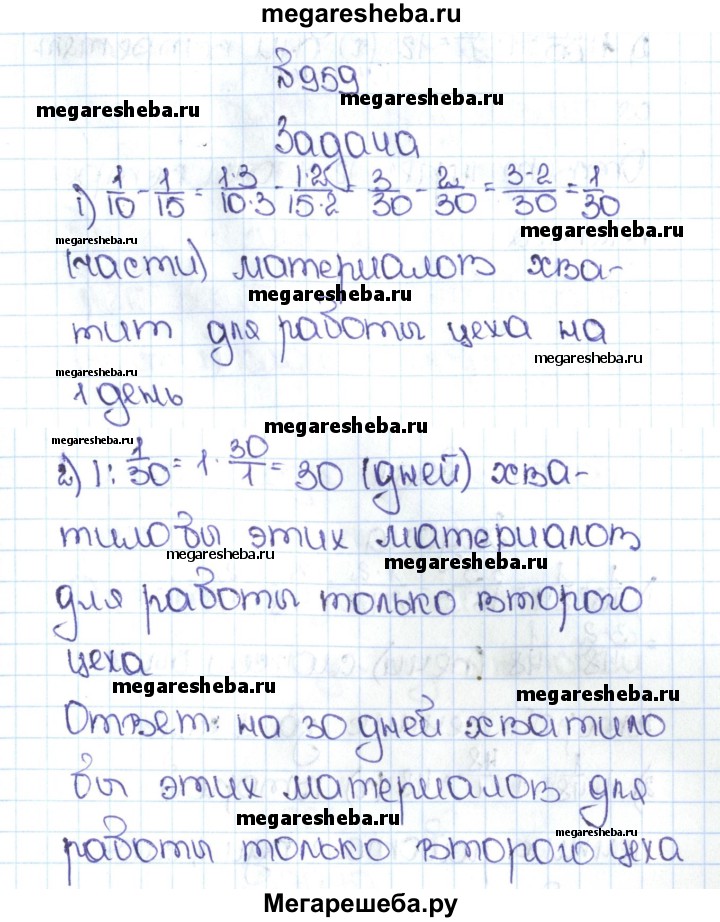 megaresheba.ru
№959
megaresheba.ru
megaresheba.ru
Задача
1) 1/10 - 1/15 = 1·3/10·3 - 1·2/15·2 = 3/30 - 2/30 = 3-2/30 = 1/30
megaresheba.ru
megaresheba.ru
(части) материалов хва-
megaresheba.ru
тит для работы цеха на
megaresheba.ru
megaresheba.ru
1 день
megaresheba.ru
megaresheba.ru
2) 1 : 1/30 = 1 · 30/1 = 30 (дней) хва-
тило бы этих материалов
megaresheba.ru
megaresheba.ru
для работы только второго
цеха
megaresheba.ru
megaresheba.ru
Ответ: на 30 дней хватило
бы этих материалов для
megaresheba.ru
megaresheba.ru
работы только второго цеха
Мегарешеба.ру